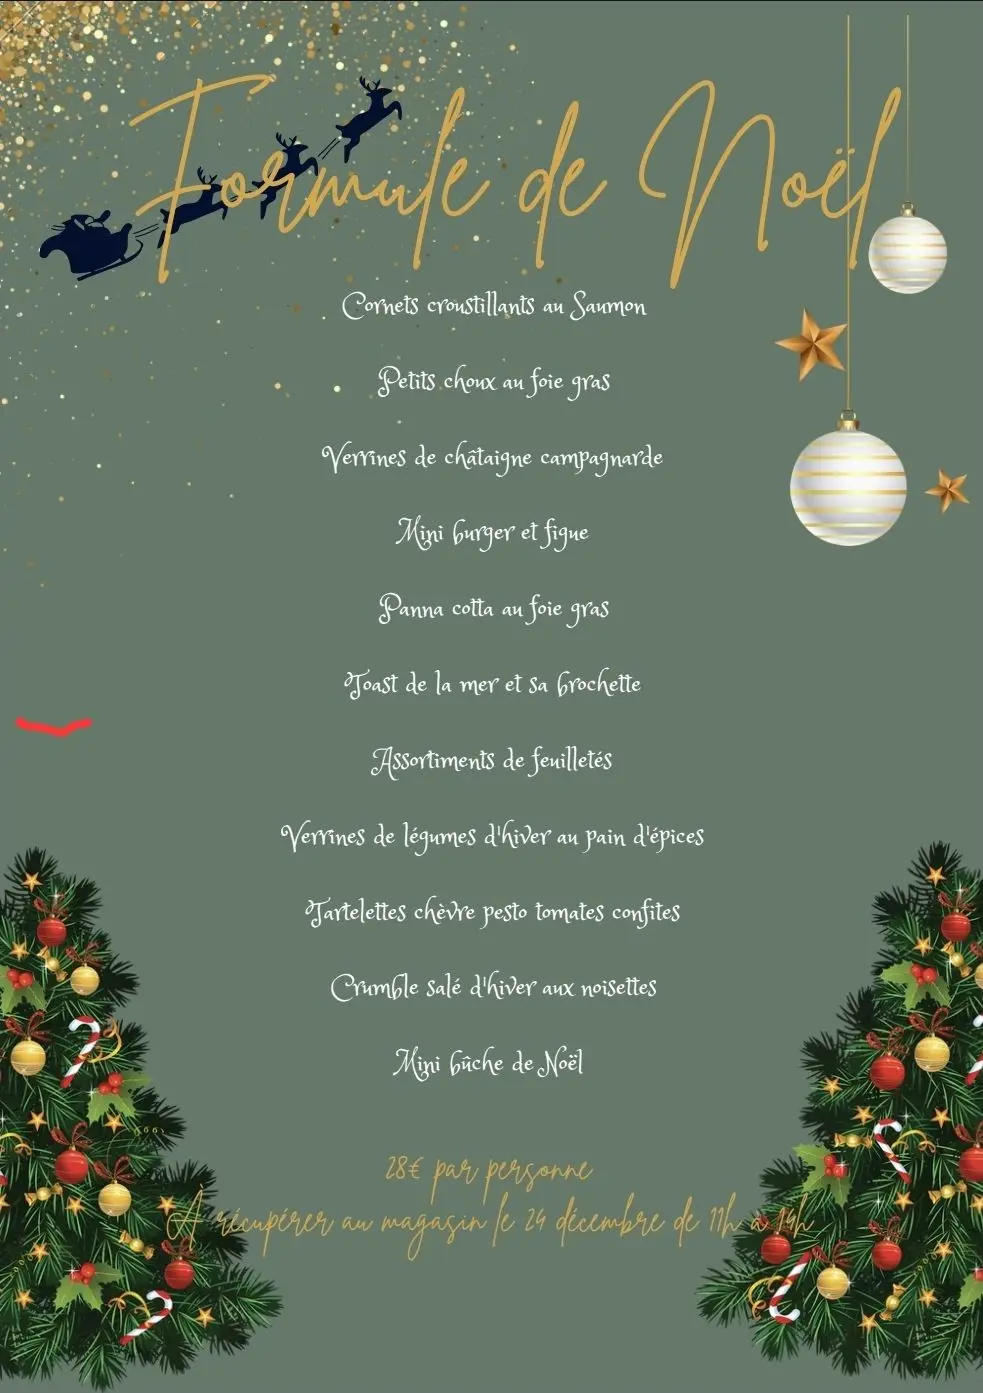 Formule de Noël
Cornets croustillants au Saumon
Petits choux au foie gras
Verrines de châtaigne campagnarde
Mini burger et figue
Panna cotta au foie gras
Toast de la mer et sa brochette
Assortiments de feuilletés
Verrines de légumes d'hiver au pain d'épices
Tartelettes chèvre pesto tomates confites
Crumble salé d'hiver aux noisettes
Mini bûche de Noël
28€ par personne
À récupérer au magasin le 24 décembre de 11h à 14h